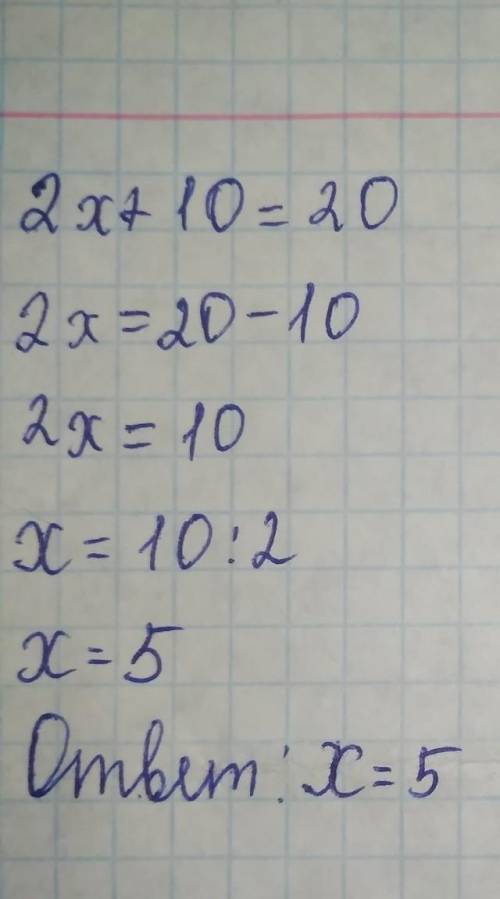 2x + 10 = 20
2x = 20 - 10
2x = 10
x = 10 : 2
x = 5
Ответ: x = 5